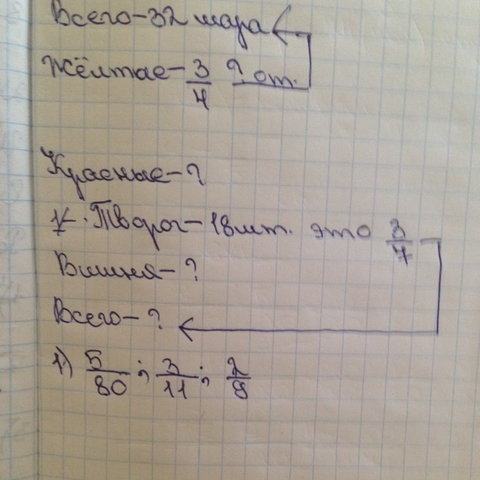 Всего-32 шара
Жёлтые-3/4 ? от.
Красные-?
Творог-18шт. это 3/7
Вишня-?
Всего-?
1) 5/80; 3/11; 2/9